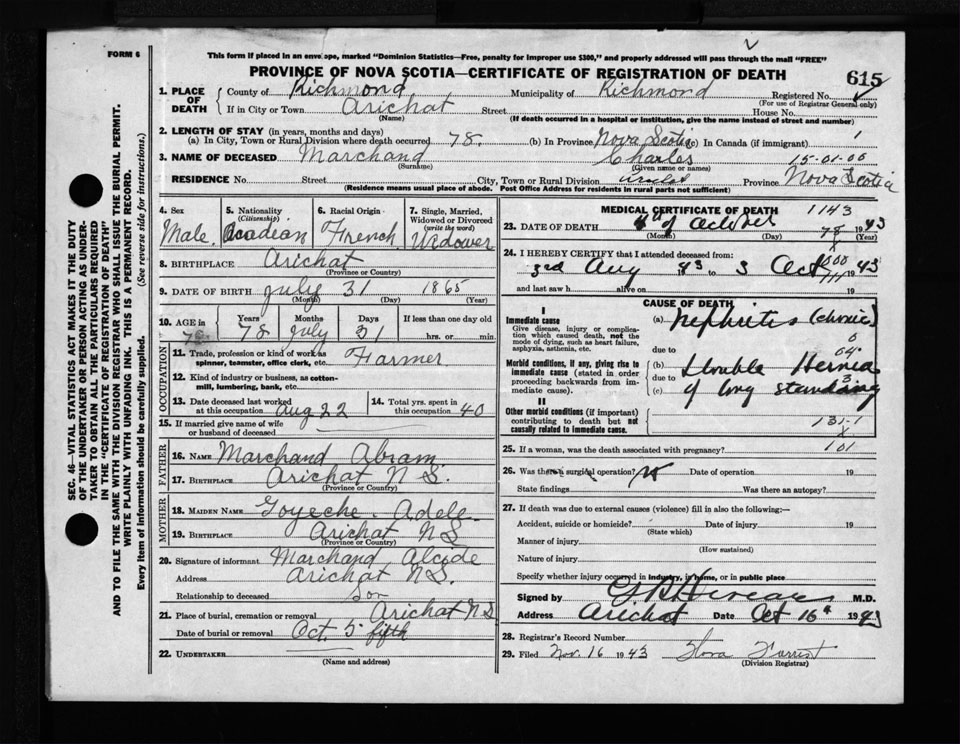 FORM 6
This form if placed in an envelope, marked "Dominion Statistics—Free, penalty for improper use $300," and properly addressed will pass through the mail "FREE"
PROVINCE OF NOVA SCOTIA—CERTIFICATE OF REGISTRATION OF DEATH
615
1. PLACE OF DEATH
County of Richmond Municipality of Richmond Registered No.
(For use of Registrar General only)
If in City or Town Arichat Street House No.
(Name) (If death occurred in a hospital or institution, give the name instead of street and number)
2. LENGTH OF STAY (in years, months and days)
(a) In City, Town or Rural Division where death occurred 78. (b) In Province Nova Scotia (c) In Canada (if immigrant)
3. NAME OF DECEASED Marchand Charles 15-01-00
(Surname) (Given name or names)
RESIDENCE No. Street City, Town or Rural Division Province Nova Scotia
(Residence means usual place of abode. Post Office Address for residents in rural parts not sufficient)
4. Sex Male
5. Nationality (Citizenship) Acadian
6. Racial Origin French
7. Single, Married, Widowed or Divorced (write the word) Widower
8. BIRTHPLACE Arichat
(Province or Country)
9. DATE OF BIRTH July 31 1865
(Month) (Day) (Year)
10. AGE in Years Months Days If less than one day
78 78 July 31 hrs. or min.
OCCUPATION
11. Trade, profession or kind of work as spinner, teamster, office clerk, etc. Farmer
12. Kind of industry or business, as cotton-mill, lumbering, bank, etc.
13. Date deceased last worked at this occupation Aug 22
14. Total yrs. spent in this occupation 40
15. If married give name of wife or husband of deceased
FATHER
16. NAME Marchand Abram
17. BIRTHPLACE Arichat N S.
(Province or Country)
MOTHER
18. MAIDEN NAME Goyeche. Adele
19. BIRTHPLACE Arichat N S
(Province or Country)
20. Signature of informant Marchand Alcide
Address Arichat N S.
Relationship to deceased Son
21. Place of burial, cremation or removal Arichat N S
Date of burial or removal Oct. 5 fifth
22. UNDERTAKER
(Name and address)
MEDICAL CERTIFICATE OF DEATH 1143
23. DATE OF DEATH October 78 1943
(Month) (Day) (Year)
24. I HEREBY CERTIFY that I attended deceased from:
3rd Aug 1943 to 3 Oct 1943
and last saw h alive on 19
CAUSE OF DEATH
I
Immediate cause
Give disease, injury or complication which caused death, not the mode of dying, such as heart failure, asphyxia, asthenia, etc.
(a) Nephritis (chronic)
due to
Morbid conditions, if any, giving rise to immediate cause (stated in order proceeding backwards from immediate cause).
(b) Double Hernia
due to
(c) of long standing
II
Other morbid conditions (if important) contributing to death but not causally related to immediate cause.
131-1
101
25. If a woman, was the death associated with pregnancy?
26. Was there a surgical operation? Date of operation 19
State findings Was there an autopsy?
27. If death was due to external causes (violence) fill in also the following:—
Accident, suicide or homicide? Date of injury 19
(State which)
Manner of injury
(How sustained)
Nature of injury
Specify whether injury occurred in industry, in home, or in public place
Signed by M.D.
Address Arichat Date Oct 16 1943
28. Registrar's Record Number
29. Filed Nov. 16 1943 Flora Forrest
(Division Registrar)
SEC. 46—VITAL STATISTICS ACT MAKES IT THE DUTY
OF THE UNDERTAKER OR PERSON ACTING AS UNDER-
TAKER TO OBTAIN ALL THE PARTICULARS REQUIRED
IN THE "CERTIFICATE OF REGISTRATION OF DEATH"
AND TO FILE THE SAME WITH THE DIVISION REGISTRAR WHO SHALL ISSUE THE BURIAL PERMIT.
WRITE PLAINLY WITH UNFADING INK. THIS IS A PERMANENT RECORD.
Every item of information should be carefully supplied. (See reverse side for instructions.)